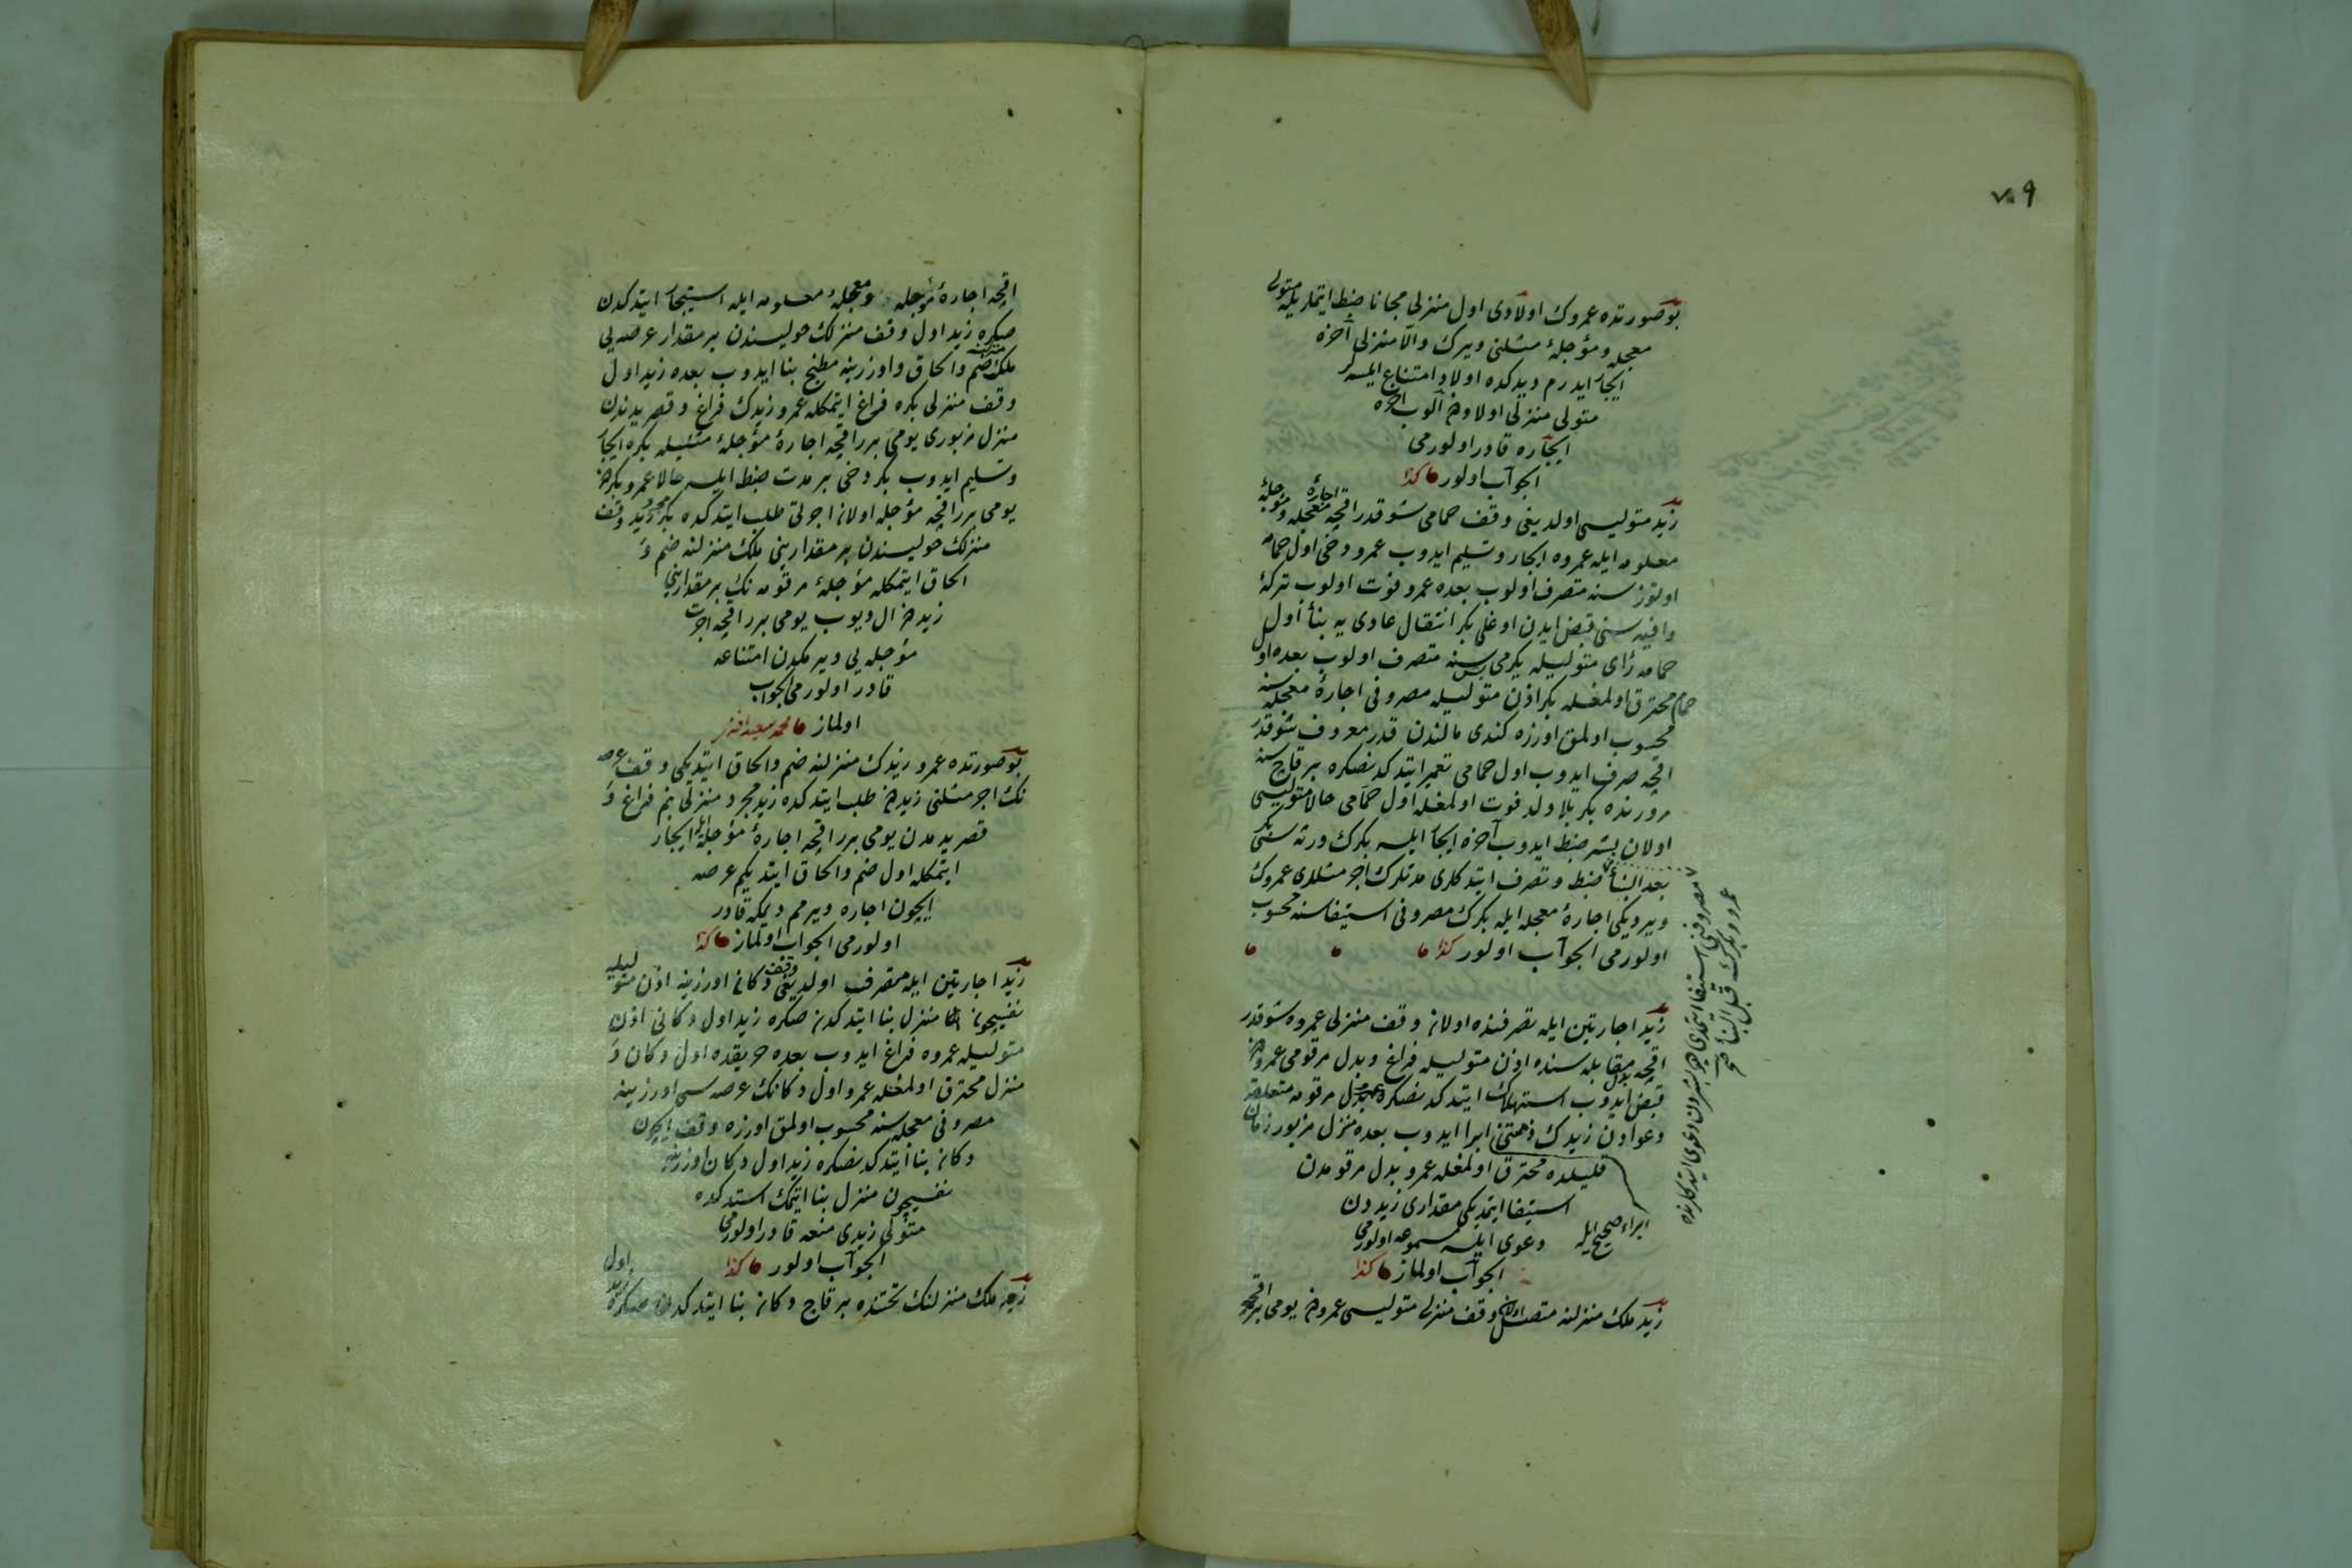 ٧٠٩
بو صورتده عمروك اولادى اول منزلى مجانا ضبط ايتملريله متولى
معجله و مؤجلۀ مثلنى ويرك والا منزلى آخره
ايجار ايدرم ديدكده اولاد امتناع ايلسه لر
متولى منزلى اولاددن آلوب آخره
ايجاره قادر اولورمى
الجواب اولور كذا
زيد متوليسى اولديغى وقف حمامى شو قدر اقچه اجارۀ معجله و مؤجلۀ
معلومه ايله عمروه ايجار و تسليم ايدوب عمرو دخى اول حمامه
اوتوز سنه متصرف اولوب بعده عمرو فوت اولوب تركۀ
وافيه سنى قبض ايدن اوغلى بكر انتقال عادى يه بناء اول
حمامه رأى متوليله يكرمى بش سنه متصرف اولوب بعده اول
حمام محترق اولمغله بكر اذن متوليله مصروفى اجارۀ معجله سنه
محسوب اولمق اوزره كندى مالندن قدر معروف شو قدر
اقچه صرف ايدوب اول حمامى تعمير ايتدكدنصكره بر قاچ سنه
مرورنده بكر بلا ولد فوت اولمغله اول حمامى حالا متوليسى
اولان بشر ضبط ايدوب آخره ايجار ايلسه بكرك ورثه سى بكر
بعد البناء ضبط و تصرف ايتدكلرى مدتلرك اجر مثللرى عمروك
ويرديكى اجارۀ معجله ايله بكرك مصروفى استيفاسنه محسوب
اولورمى الجواب اولور كذا
مصروفنى استيفا ايتمدى ديو بشردن دعوى ايتدكلرنده
عمرو و بكرك قبل البناء صح
زيد اجارتين ايله تصرفنده اولان وقف منزلى عمروه شو قدر
اقچه بدل مقابله سنده اذن متوليله فراغ و بدل مرقومى عمرودن
قبض ايدوب استهلاك ايتدكدنصكره عمرو بدل مرقومه متعلقه
دعوادن زيدك ذمتنى ابرا ايدوب بعده منزل مزبور زمان
قليلده محترق اولمغله عمرو بدل مرقومدن
استيفا ايتمديكى مقدارى زيددن
ابراء صحيح ايله
دعوى ايلسه مسموعه اولورمى
الجواب اولماز كذا
زيد ملك منزلنه متصل اولان وقف منزلى متوليسى عمرودن يومى برر اقچه
اقچه اجارۀ مؤجله و معجلۀ معلومه ايله استيجار ايتدكدن
صكره زيد اول وقف منزلك حوليسندن بر مقدار عرصه يى
ملك منزلنه ضم و الحاق و اوزرينه مطبخ بنا ايدوب بعده زيد اول
وقف منزلى بكره فراغ ايتمكله عمرو زيدك فراغ و قصر يدندن
منزل مزبورى يومى برر اقچه اجارۀ مؤجلۀ مثليله بكره ايجار
و تسليم ايدوب بكر دخى بر مدت ضبط ايلسه حالا عمرو بكردن
يومى برر اقچه مؤجله اولان اجرتى طلب ايتدكده بكر مجرد زيد وقف
منزلك حوليسندن بر مقدارينى ملك منزلنه ضم و
الحاق ايتمكله مؤجلۀ مرقومه نك بر مقدارينى
زيددن آل ديوب يومى برر اقچه اجرت
مؤجله يى ويرمكدن امتناعه
قادر اولورمى الجواب
اولماز محمد سعيد افندى
بو صورتده عمرو زيدك منزلنه ضم و الحاق ايتديكى وقف عرصه
نك اجر مثلنى زيددن طلب ايتدكده زيد مجرد منزلى بنم فراغ و
قصر يدمدن يومى برر اقچه اجارۀ مؤجله ايله ايجار
ايتمكله اول ضم و الحاق ايتديكم عرصه
ايچون اجاره ويرمم ديمكه قادر
اولورمى الجواب اولماز كذا
زيد اجارتين ايله متصرف اولديغى وقف دكان اوزرينه اذن متوليله
نفسيچون منزل بنا ايتدكدن صكره زيد اول دكانى اذن
متوليله عمروه فراغ ايدوب بعده حريقده اول دكان و
منزل محترق اولمغله عمرو اول دكانك عرصه سى اوزرينه
مصروفى معجله سنه محسوب اولمق اوزره وقف ايچون
دكان بنا ايتدكدنصكره زيد اول دكان اوزرينه
نفسيچون منزل بنا ايتمك استدكده
متولى زيدى منعه قادر اولورمى
الجواب اولور كذا
زيد ملك منزلنك تحتنده بر قاچ دكان بنا ايتدكدن صكره زيد اول